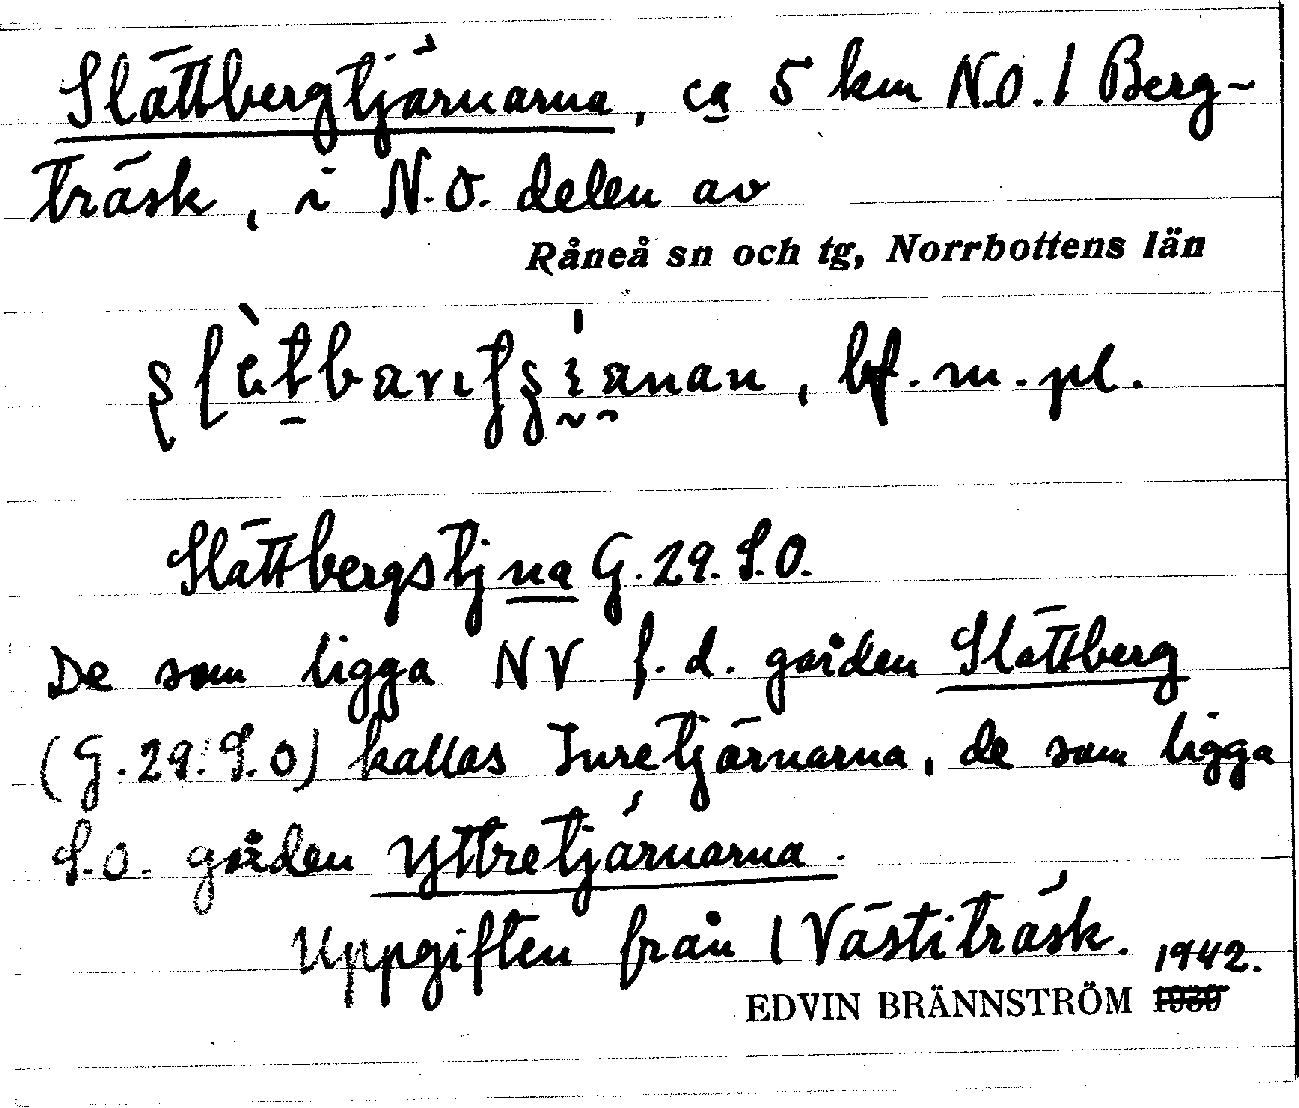 Slättbergtjärnarna, ca 5 km N.O. 1 Berg-
träsk, i N.O. delen av
Råneå sn och tg, Norrbottens län
bf. m. pl.
Slättbergstjna G. 29. S.O.
De som ligga NV f.d. gården Slättberg
(G. 29. S.O) kallas Inretjärnarna, de som ligga
S.O. gården Yttretjärnarna.
Uppgiften från 1 Västiträsk. 1942.
EDVIN BRÄNNSTRÖM 1930